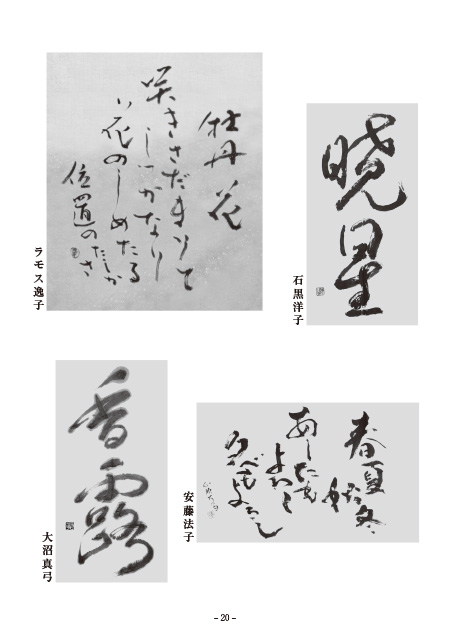 暁星
石黒洋子
牡丹花
咲きさだまりて
しづかなり
花のしめたる
位置の
たしか
さ
ラモス逸子
春夏
秋冬
あしたも
よろし
夕べもよろし
安藤法子
香露
大沼真弓
- 20 -